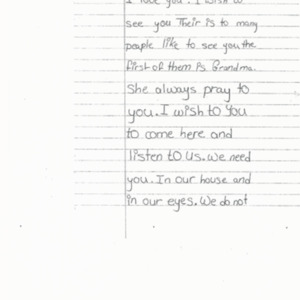 I love you. I wish to
see you Their is to many
people like to see you the
first of them is Grandma.
She always pray to
you. I wish to you
to come here and
listen to us. We need
you. In our house and
in our eyes. We do not